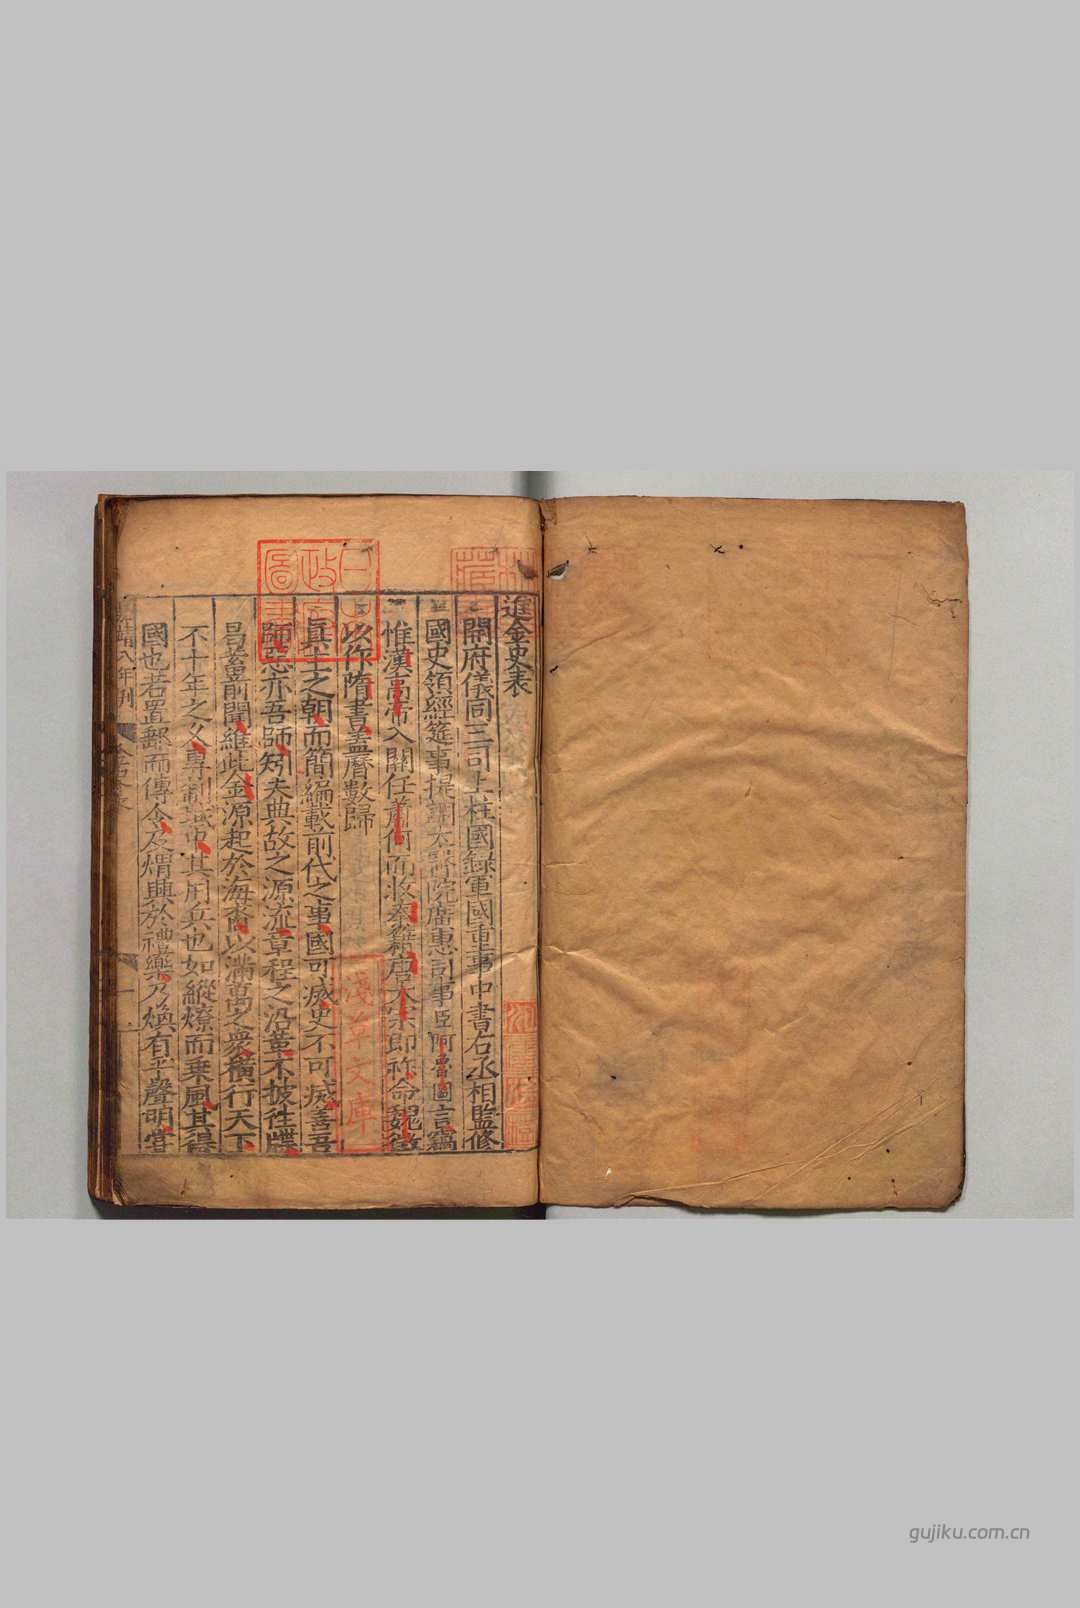 進金史表
開府儀同三司上柱國錄軍國重事中書右丞相監修
國史領經筵事提調太醫院廣惠司事臣阿魯圖言竊
惟漢高帝入關任蕭何而收秦籍唐太宗即祚命魏徵
以作隋書蓋曆數歸
真主之朝而簡編載前代之事國可滅史不可滅善吾
師惡亦吾師矧夫典故之源流章程之沿革不披往牒
曷蓄前聞維此金源起於海裔以滿萬之衆橫行天下
不十年之久專制域中其用兵也如縱燎而乗風其得
國也若置郵而傳令及煟興於禮樂乃煥有乎聲明嘗
嘉靖八年刊
金史表
一
淺草文庫
圖書
gujiku.com.cn